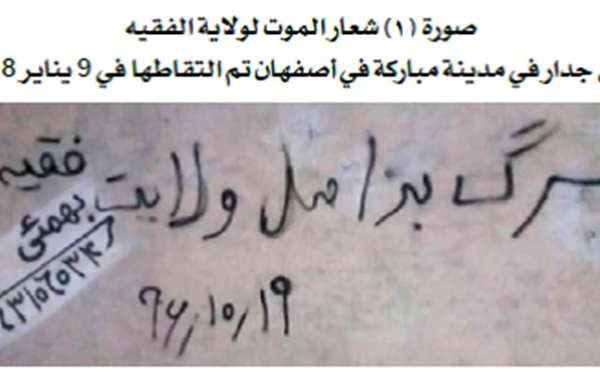 صورة (١) شعار الموت لولاية الفقيه
جدار في مدينة مباركة في أصفهان تم التقاطها في 9 يناير
مرگ بر اصل ولایت فقیه
بهمئی
۹۶,۱۰,۱۹